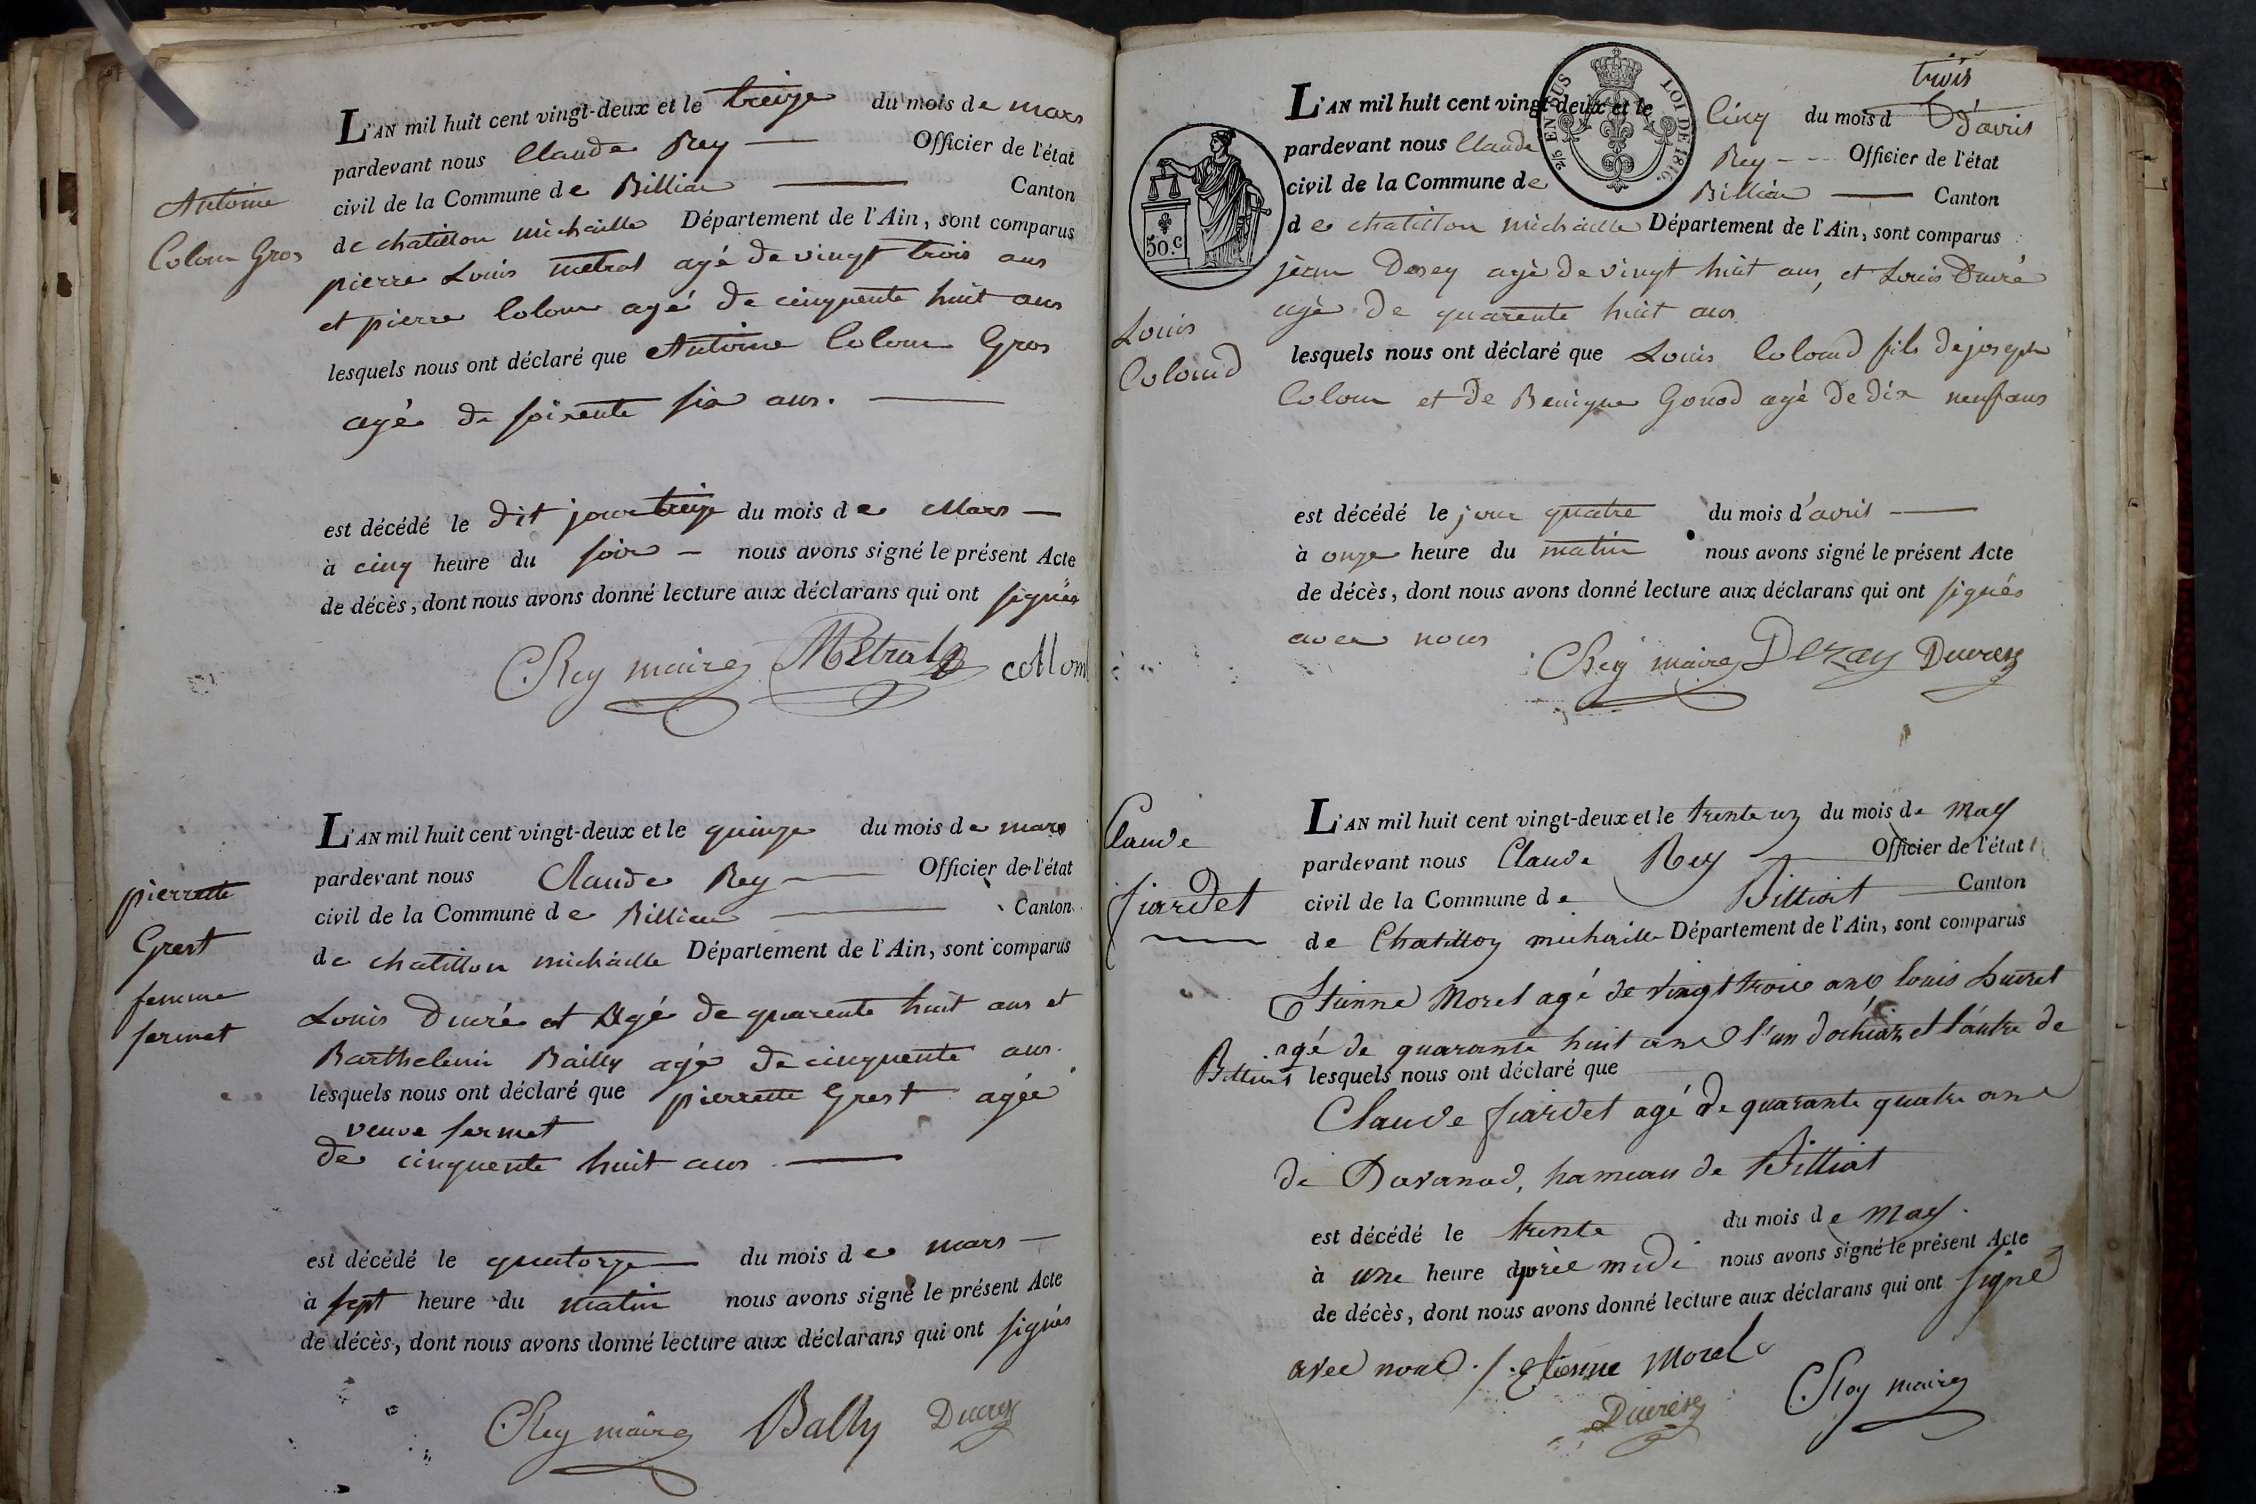 L'AN mil huit cent vingt-deux et le treize du mois de mars
pardevant nous Claude Rey Officier de l'état
civil de la Commune de Billian Canton
de chatillon michaille Département de l'Ain, sont comparus
pierre Louis metral agé de vingt trois ans
et pierre Colom agé de cinquente huit ans
lesquels nous ont déclaré que Antoine Colom Gros
agé de soixente six ans.
Antoine
Colom Gros
est décédé le dit jour treize du mois de Mars
à cinq heure du soir nous avons signé le présent Acte
de décès, dont nous avons donné lecture aux déclarans qui ont signés
CRey maire Metral collom
L'AN mil huit cent vingt-deux et le quinze du mois de mars
pardevant nous Claude Rey Officier de l'état
civil de la Commune de Billian Canton
de chatillon michaille Département de l'Ain, sont comparus
Louis Ducré et agé de quarente huit ans et
Barthelemi Bailly agé de cinquente ans.
lesquels nous ont déclaré que pierrette Grest agée
veuve fermet
de cinquente huit ans
pierrette
Grest
femme
fermet
est décédé le quatorze du mois de mars
à sept heure du matin nous avons signé le présent Acte
de décès, dont nous avons donné lecture aux déclarans qui ont signés
CRey maire Bally Ducrey
trois
L'AN mil huit cent vingt-deux et le Cinq du mois d d'avril
pardevant nous Claude Rey Officier de l'état
civil de la Commune de Billian Canton
de chatillon michaille Département de l'Ain, sont comparus
jean Desey agé de vingt huit ans, et Louis Ducré
agé de quarente huit ans
lesquels nous ont déclaré que Louis Colomd fils de joseph
Colom et de Benigne Gonod agé de dix neuf ans
2/5 EN SUS
LOI DE 1816.
50.c
Louis
Colomd
est décédé le jour quatre du mois d'avril
à onze heure du matin nous avons signé le présent Acte
de décès, dont nous avons donné lecture aux déclarans qui ont signés
avec nous
CRey maire Dezay Ducrey
L'AN mil huit cent vingt-deux et le trente un du mois de May
pardevant nous Claude Rey Officier de l'état
civil de la Commune de Billiat Canton
de Chatillon michaille Département de l'Ain, sont comparus
Etienne Morel agé de vingt trois ans louis Ducret
agé de quarante huit ans l'un d'ochiaz et l'autre de
Billiat lesquels nous ont déclaré que
Claude fiardet agé de quarante quatre ans
de Davanod, hameau de Billiat
Claude
fiardet
est décédé le trente du mois de May.
à une heure après midi nous avons signé le présent Acte
de décès, dont nous avons donné lecture aux déclarans qui ont signé
avec nous ./. Etienne Morel
Ducrey CRey maire